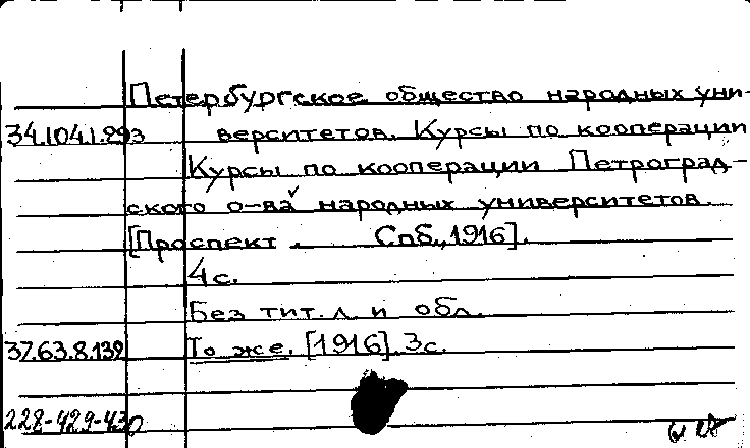 Петербургское общество народных уни-
34.104.1.293 верситетов. Курсы по кооперации
Курсы по кооперации Петроград-
ского о-ва народных университетов.
[Проспект. Спб., 1916].
4 с.
Без тит. л. и обл.
37.63.8.139 То же. [1916]. 3 с.
228-429-430